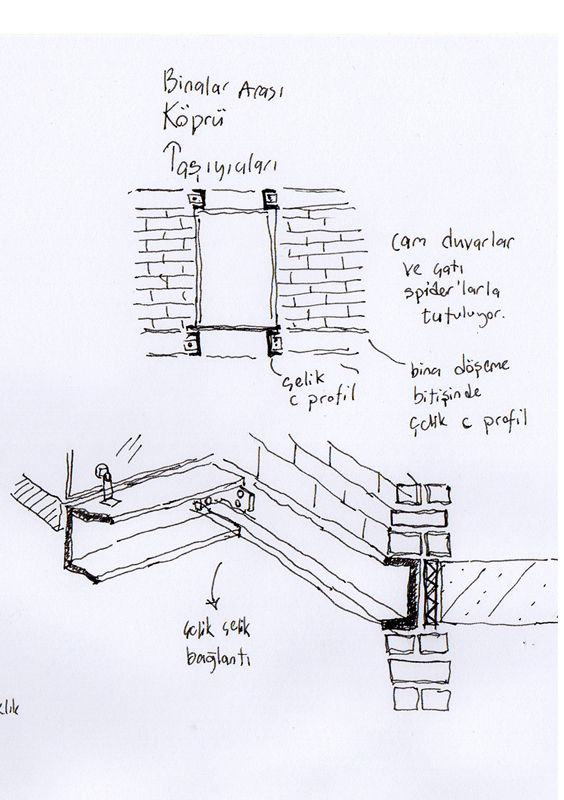 Binalar Arası
Köprü
Taşıyıcıları
Cam duvarlar
ve çatı
spider'larla
tutuluyor.
bina döşeme
bitişinde
çelik c profil
çelik
c profil
çelik çelik
bağlantı
klik